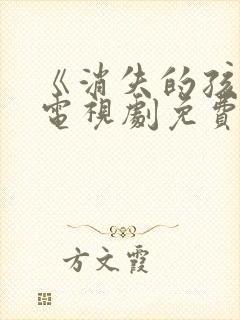 《消失的孩
電視劇免費
方文霞